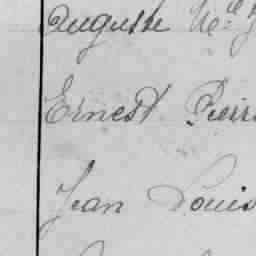 Auguste
Ernest Pierr
Jean Louis